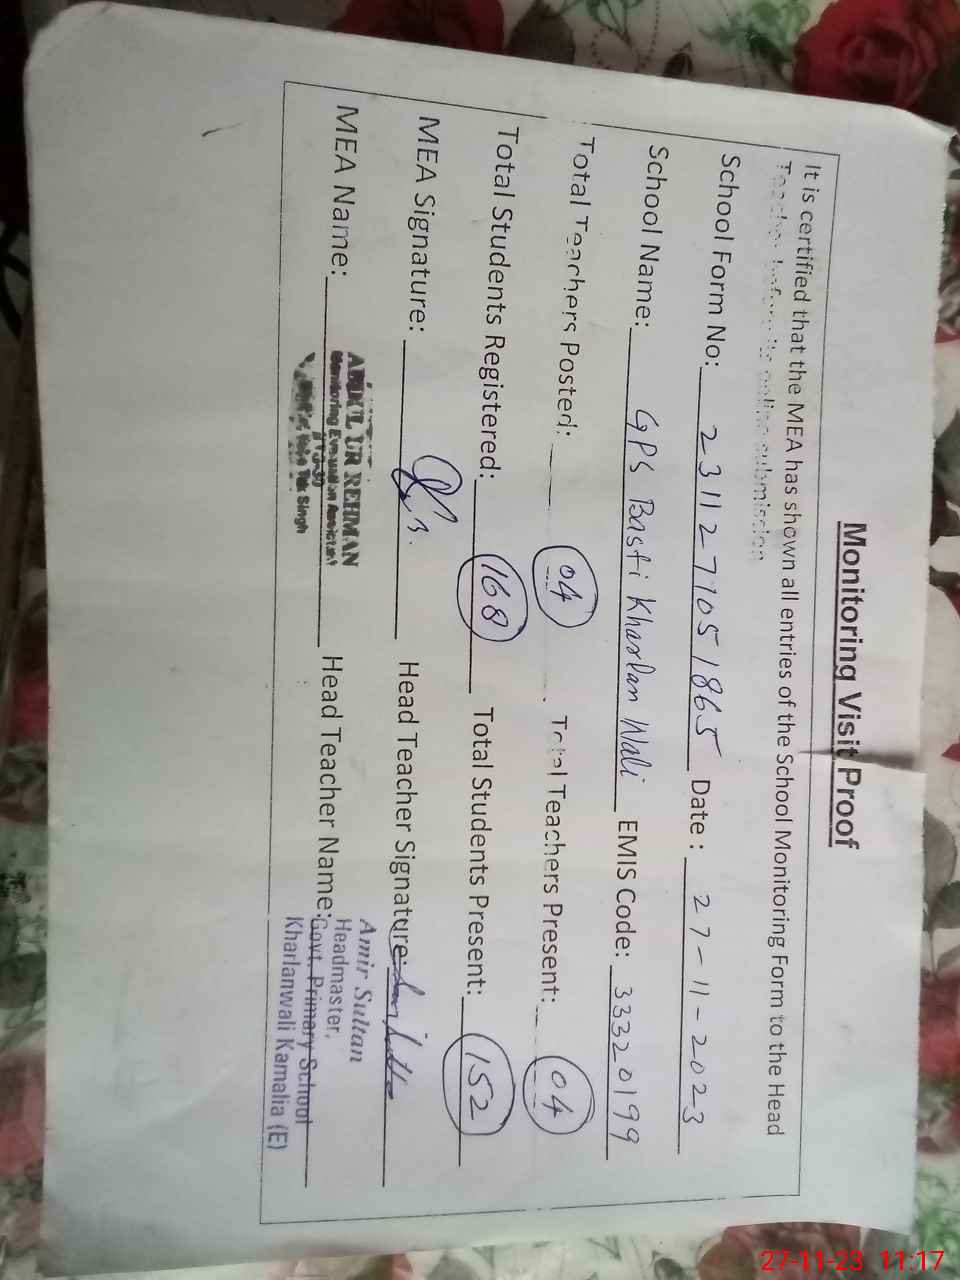 Monitoring Visit Proof
It is certified that the MEA has shown all entries of the School Monitoring Form to the Head
Teacher before its online submission
School Form No: 231127705 1865 Date : 27-11-2023
School Name: GPS Basti Kharlan Wali EMIS Code: 33320199
Total Teachers Posted: 04 Total Teachers Present: 04
Total Students Registered: 168 Total Students Present: 152
MEA Signature: Head Teacher Signature:
MEA Name: ABDUL UR REHMAN Head Teacher Name: Amir Sultan
Monitoring Evaluation Assistant
Headmaster,
Govt. Primary School
Kharlanwali Kamalia (E)
Tek Singh
27-11-23 11:17